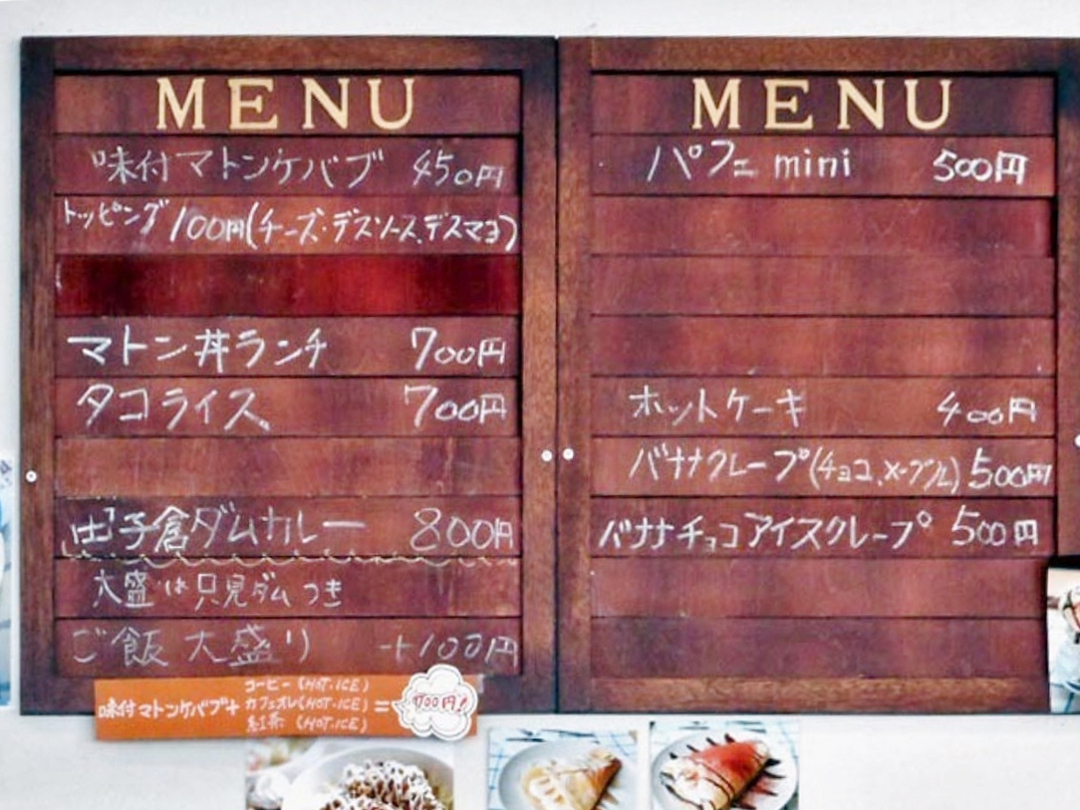 MENU
味付マトンケバブ 450円
トッピング100円(チーズ・デスソース、デスマヨ)
マトン丼ランチ 700円
タコライス 700円
田子倉ダムカレー 800円
大盛は只見ダムつき
ご飯 大盛り +100円
味付マトンケバブ+
コーヒー(HOT・ICE)
カフェオレ(HOT・ICE)
紅茶(HOT・ICE)
=700円!
MENU
パフェ mini 500円
ホットケーキ 400円
バナナクレープ(チョコ、メープル) 500円
バナナチョコアイスクレープ 500円